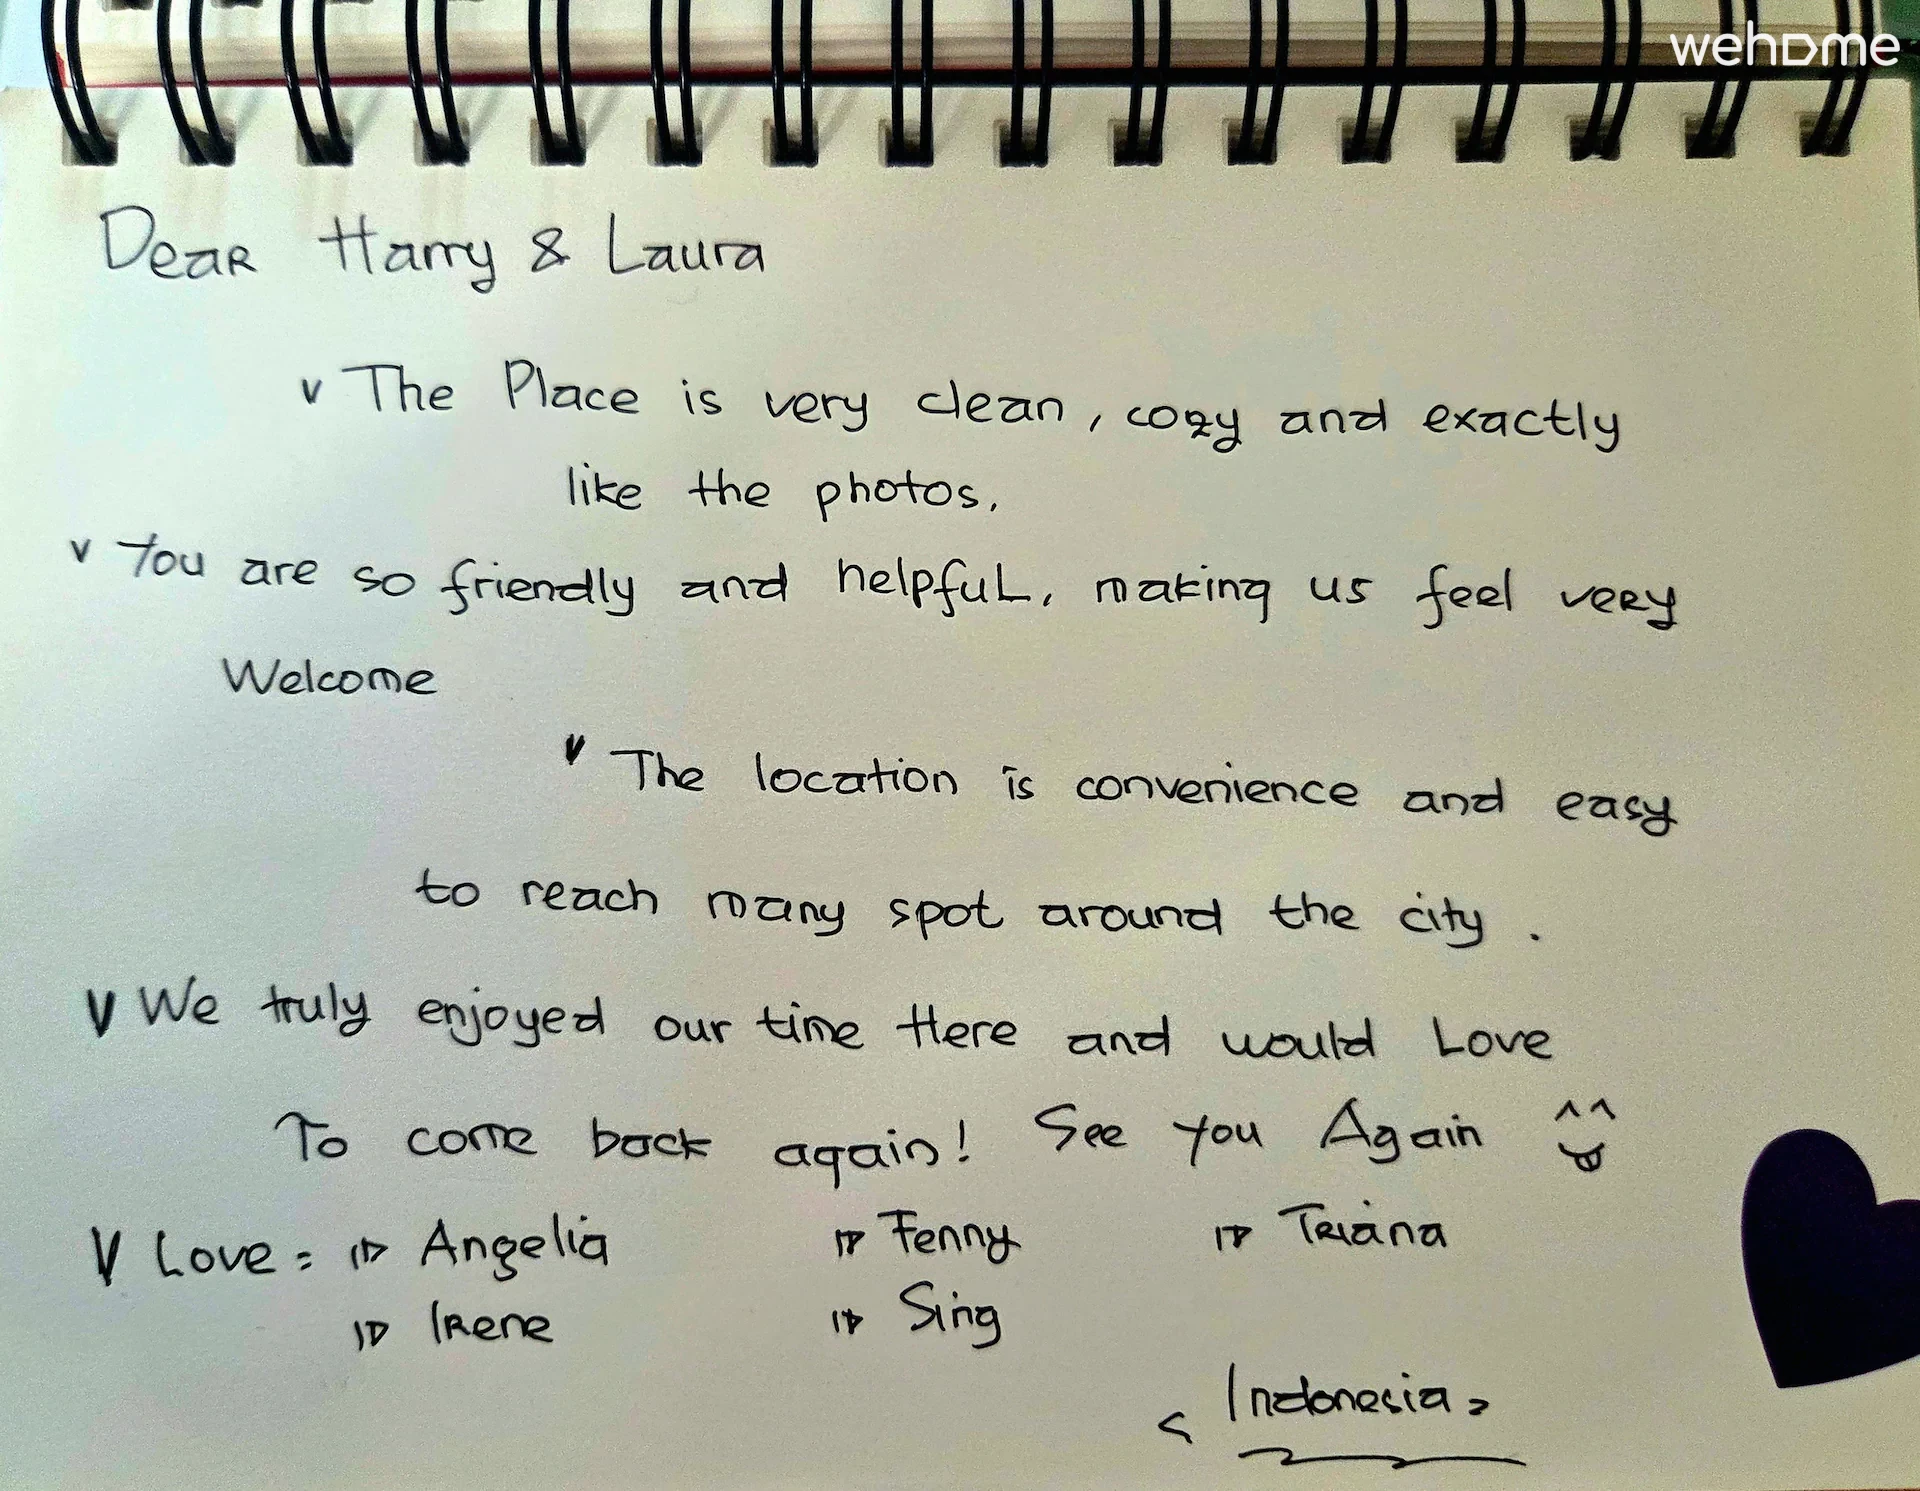 wehome
Dear Harry & Laura
v The Place is very clean, cozy and exactly
like the photos.
v You are so friendly and helpful, making us feel very
Welcome
v The location is convenience and easy
to reach many spot around the city.
v We truly enjoyed our time Here and would Love
To come back again! See you Again ^^
v Love = Angelia Fenny Triana
Irene Sing
< Indonesia >